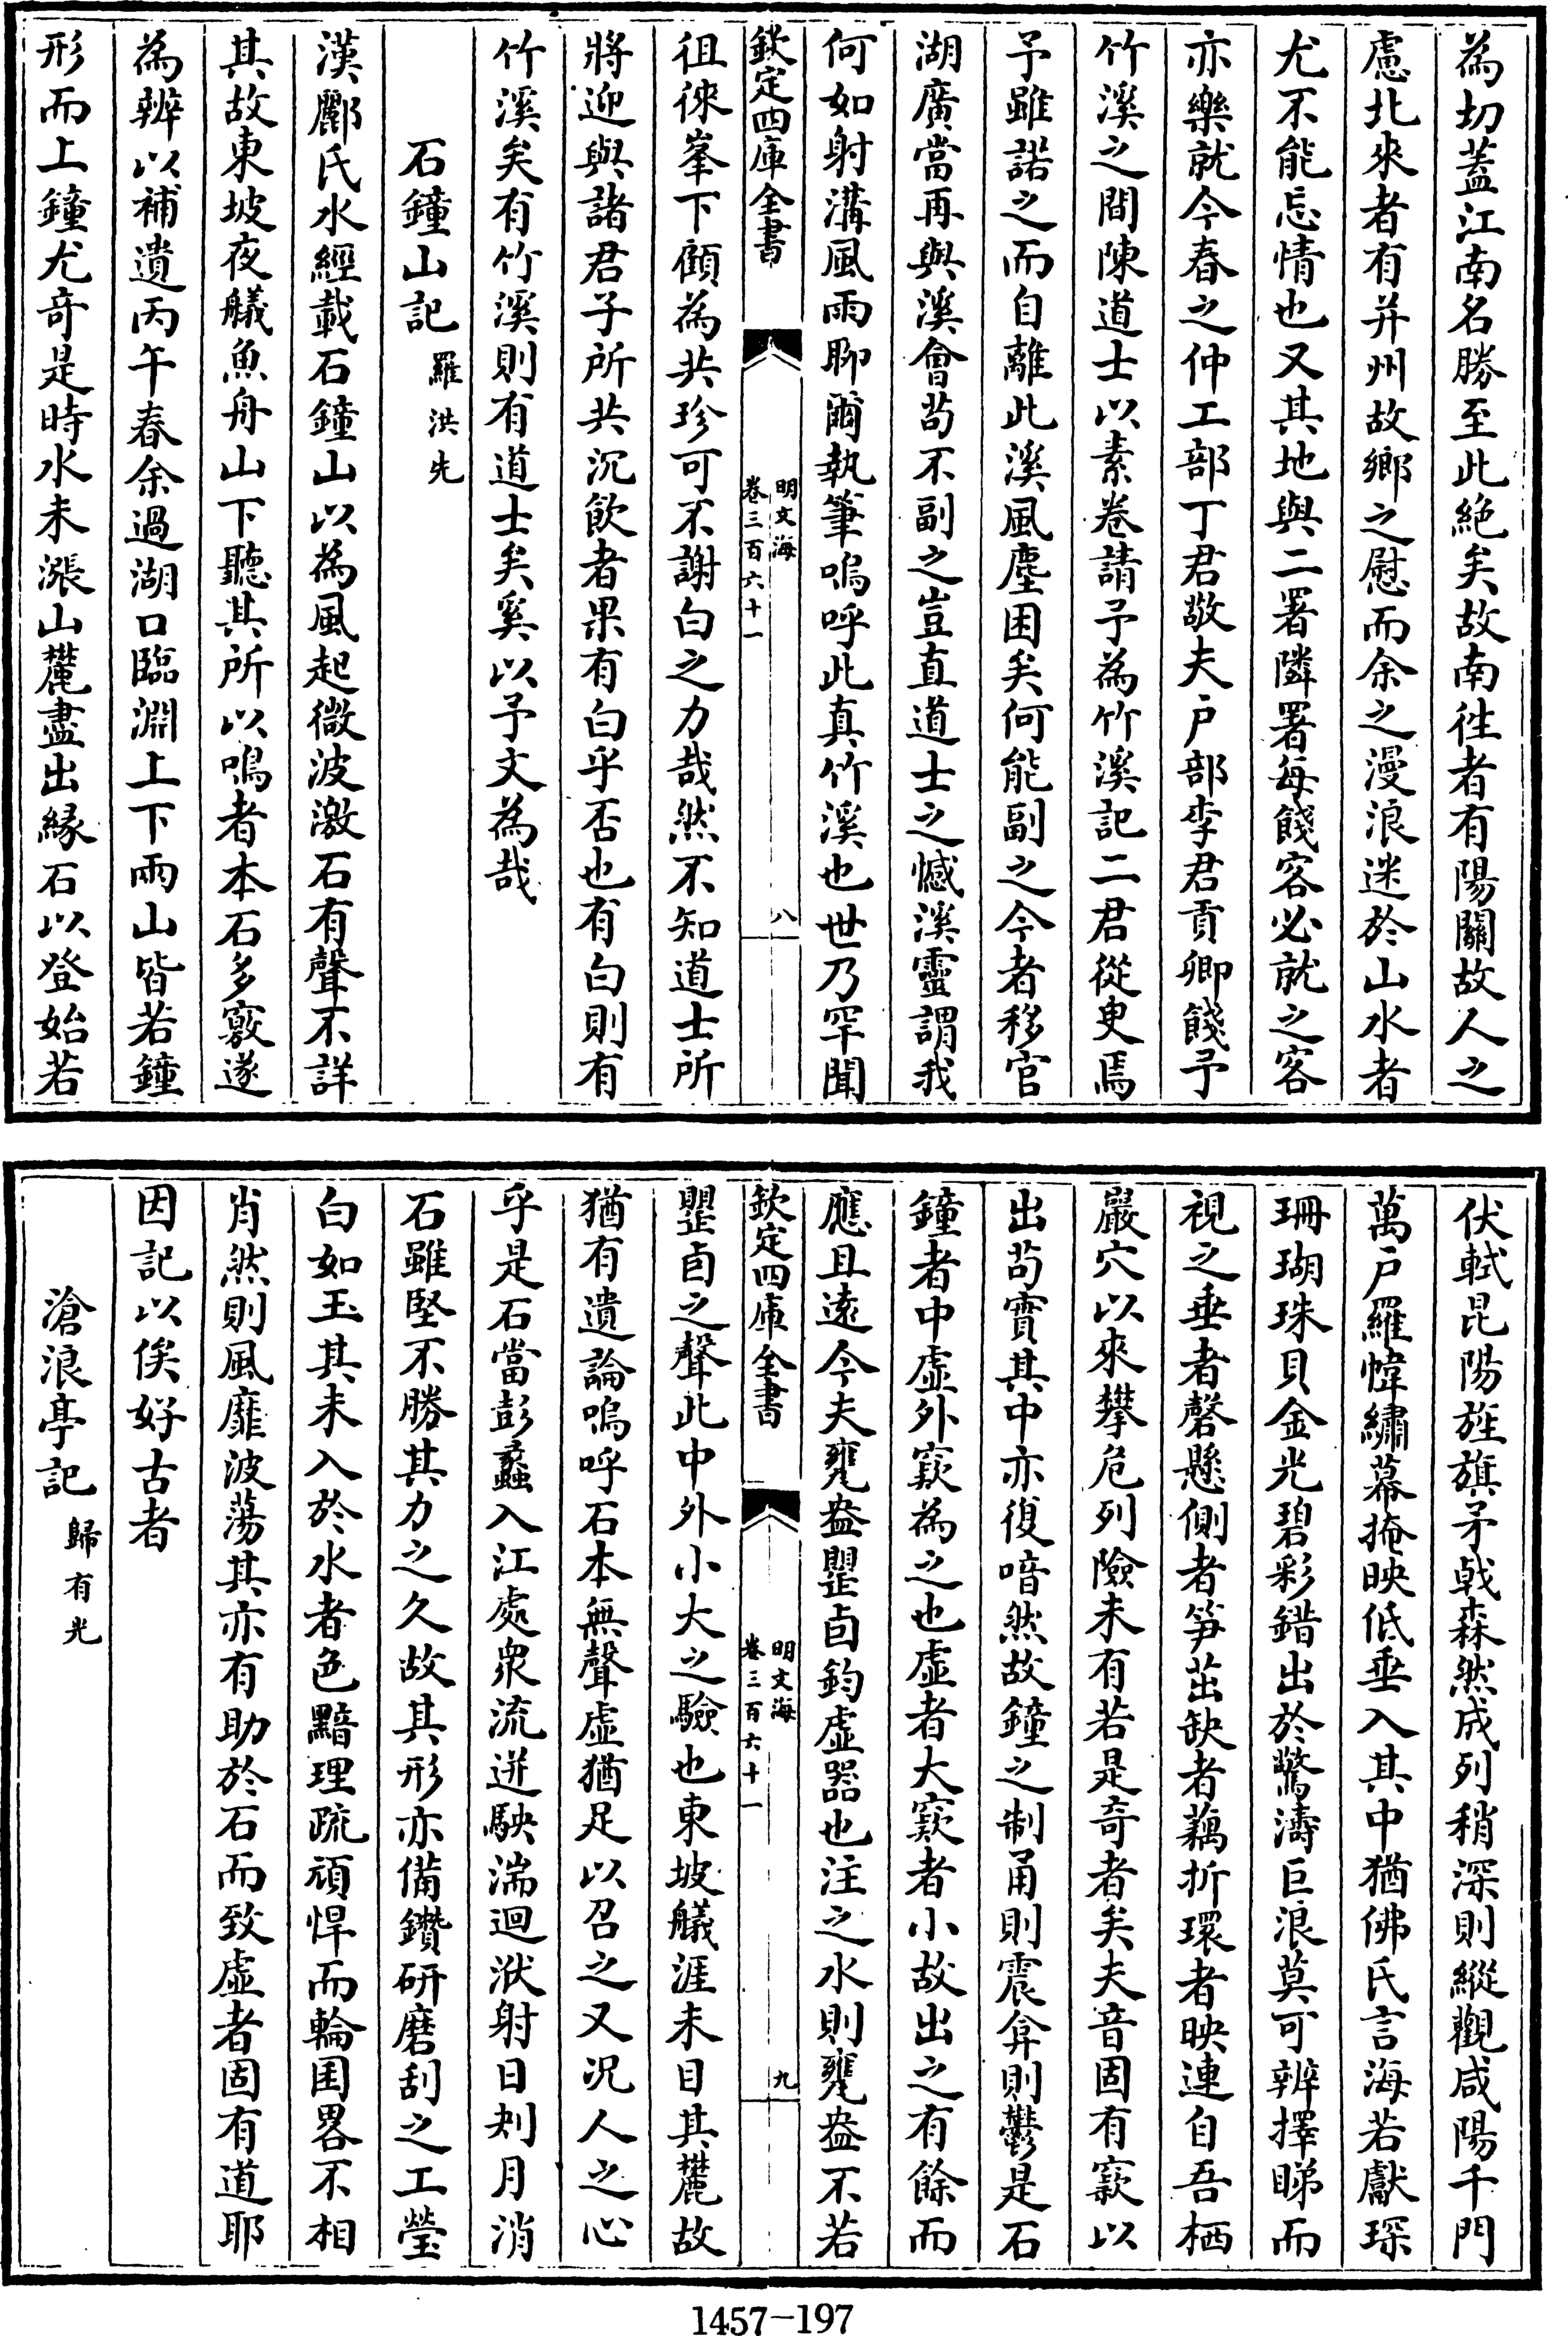 為切蓋江南名勝至此絶矣故南徃者有陽關故人之
慮北來者有并州故鄉之慰而余之漫浪迷於山水者
尤不能忘情也又其地與二署隣署每餞客必就之客
亦樂就今春之仲工部丁君敬夫户部李君貢卿餞予
竹溪之間陳道士以素卷請予為竹溪記二君從臾焉
予雖諾之而自離此溪風塵困矣何能副之今者移官
湖廣當再與溪會茍不副之豈直道士之憾溪靈謂我
何如射溝風雨聊爾執筆嗚呼此真竹溪也世乃罕聞
欽定四庫全書
明文海
卷三百六十一
八
徂徠峯下顧為共珍可不謝白之力哉然不知道士所
將迎與諸君子所共沉飲者果有白乎否也有白則有
竹溪矣有竹溪則有道士矣奚以予文為哉
石鐘山記 羅洪先
漢酈氏水經載石鐘山以為風起微波激石有聲不詳
其故東坡夜艤魚舟山下聽其所以鳴者本石多竅遂
為辨以補遺丙午春余過湖口臨淵上下兩山皆若鐘
形而上鐘尤奇是時水未漲山麓盡出緣石以登始若
伏軾昆陽旌旗矛㦸森然成列稍深則縱觀咸陽千門
萬户羅幃繡幕掩映低垂入其中猶佛氏言海若獻琛
珊瑚珠貝金光碧彩錯出於驚濤巨浪莫可辨擇睇而
視之垂者磬懸側者笋茁缺者藕折環者映連自吾栖
巖穴以來攀危列險未有若是奇者矣夫音固有窾以
出茍實其中亦復喑然故鐘之制甬則震弇則鬱是石
鐘者中虛外窾為之也虛者大窾者小故出之有餘而
應且遠今夫甕盎罌卣鈞虛器也注之水則甕盎不若
欽定四庫全書
明文海
卷三百六十一
九
罌卣之聲此中外小大之驗也東坡艤涯未目其麓故
猶有遺論嗚呼石本無聲虛猶足以召之又况人之心
乎是石當彭蠡入江處衆流迸駃湍迴洑射日剡月消
石雖堅不勝其力之久故其形亦備鑽研磨刮之工瑩
白如玉其未入於水者色黯理疏頑悍而輪囷畧不相
肖然則風靡波蕩其亦有助於石而致虛者固有道耶
因記以俟好古者
滄浪亭記 歸有光
1457-197